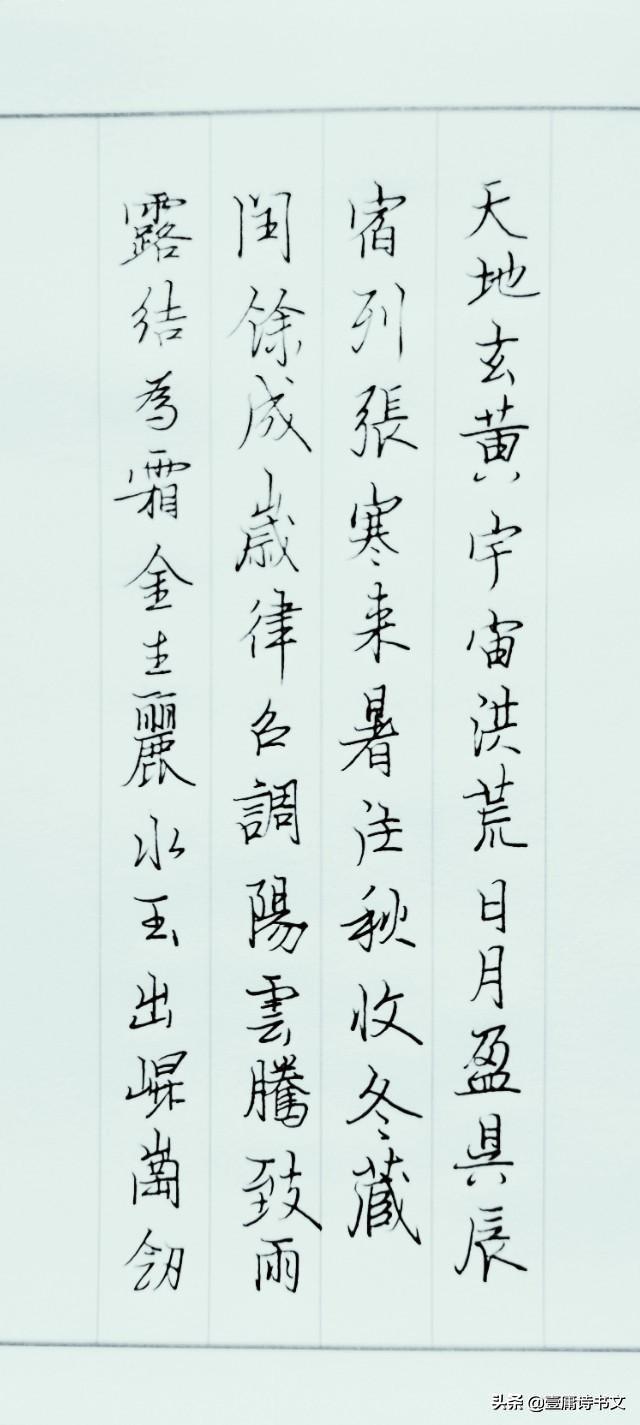 天地玄黄宇宙洪荒日月盈昃辰
宿列張寒来暑往秋收冬蔵
閏餘成歲律召調陽雲騰致雨
露結為霜金生麗水玉出崐崗劒
头条 @壹庸诗书文